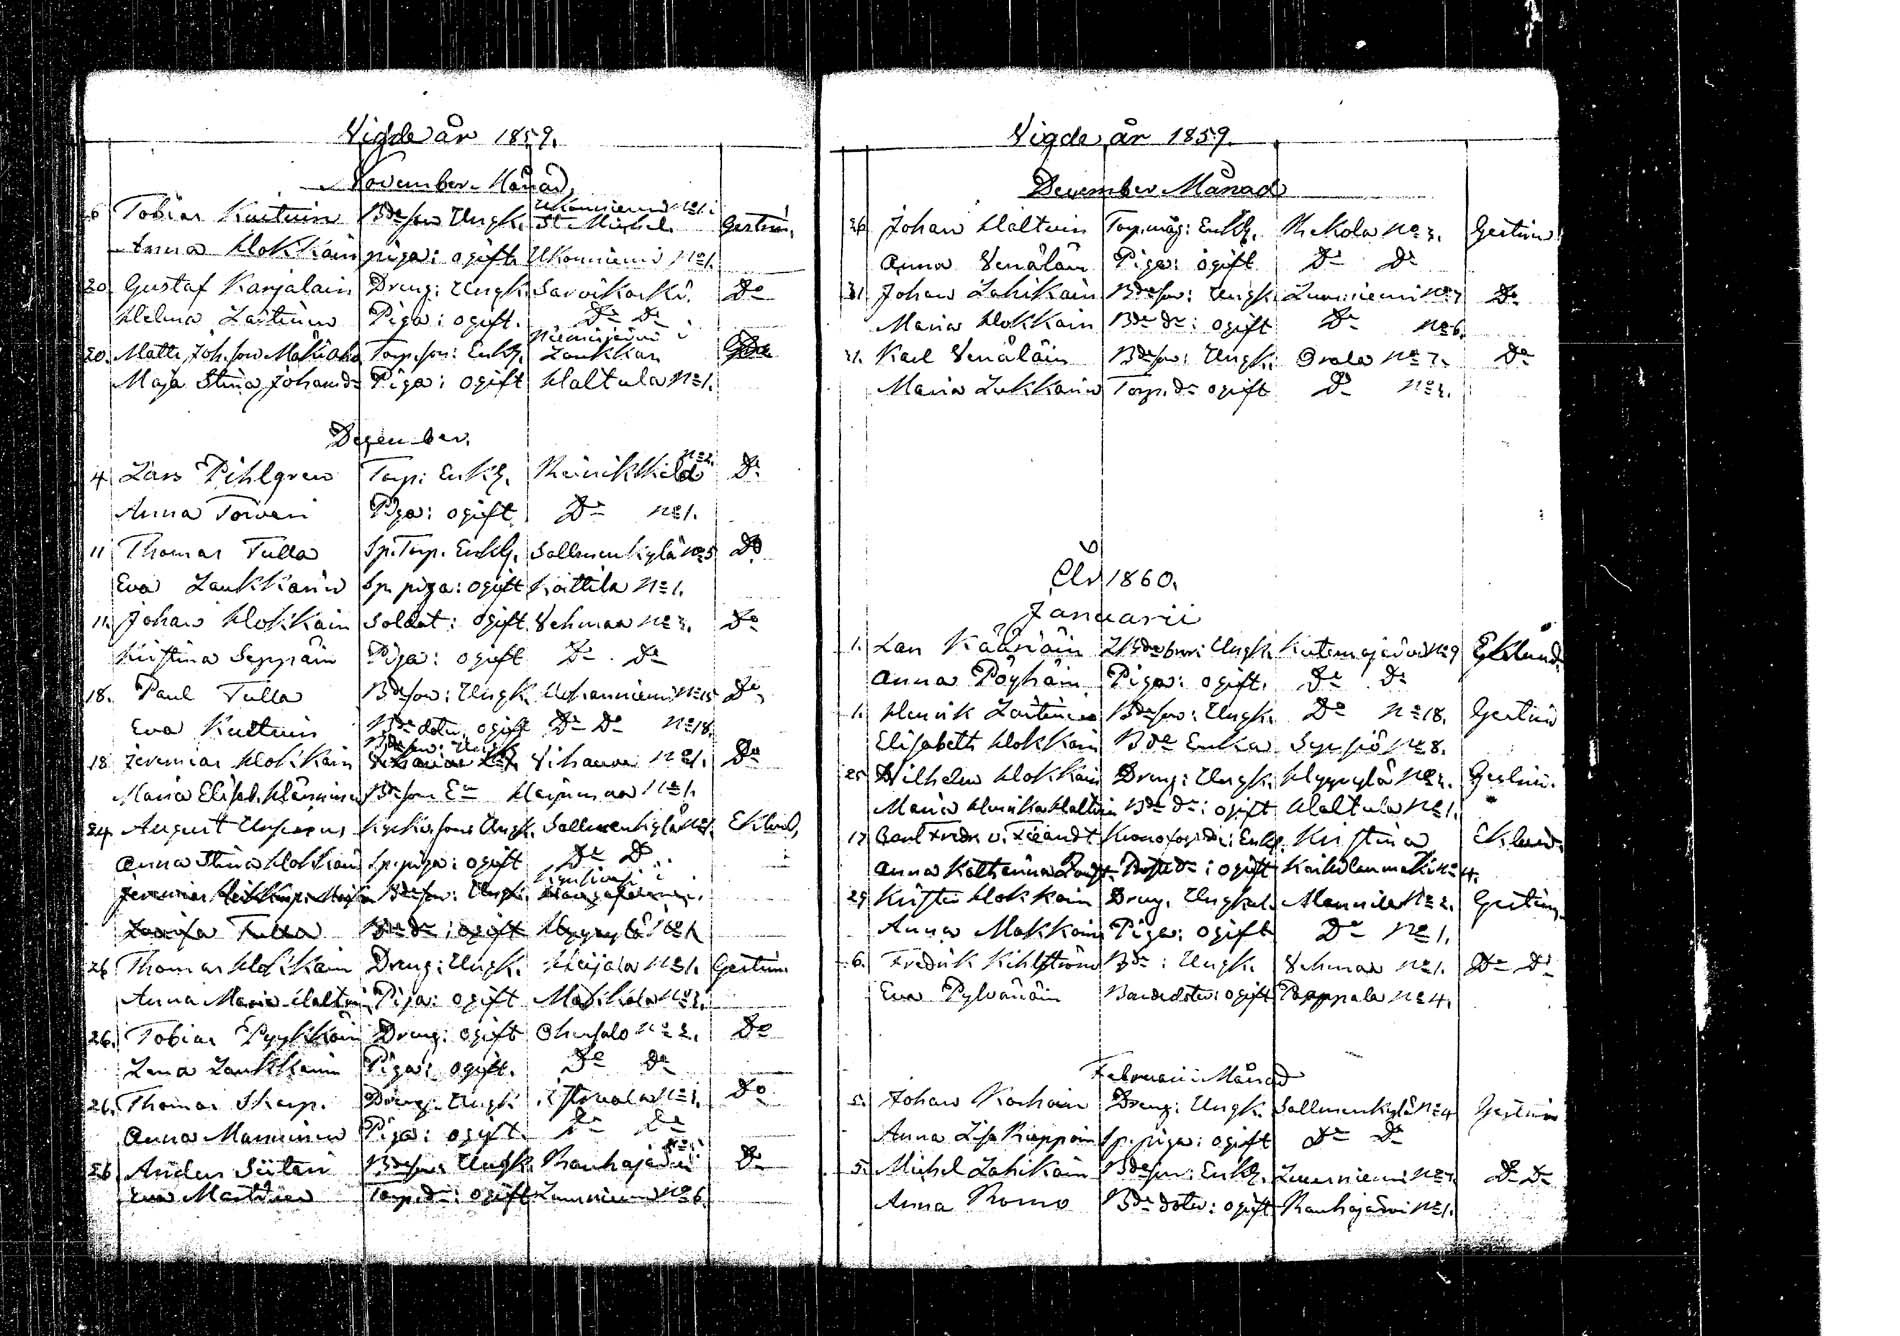 Vigde år 1859.
November Månad
Tobias Kuituin Bdeson Ungk. Ukonniemi No 1. St Michel. Gestrin.
Anna Hokkain piga: ogift Ukonniemi No 1.
20. Gustaf Karjalain Dreng: Ungk. Sarvikoski. Do
Helena Laitinen Piga: ogift. Do Do
20. Matts Joh.son Torp.son: Enkl. i Laukkas
Maja Stina Johansdr Piga: ogift Haltula No 1.
December.
4 Lars Pihlgren Torp: Enkl. No 2. Do
Anna Torven Piga: ogift Do No 1.
11 Thomas Tulla Sp. Torp. Enkl. Sallmenkylä No 5 Do
Eva Laukkanen Sp. piga: ogift Kottila No 1.
11. Johan Hokkain Soldat: ogift Vehmaa No 3. Do
Kristina Seppäin Piga: ogift Do Do
18. Paul Tulla Bdeson: Ungk. No 15 Do
Eva Kuituin Bde doter, ogift Do Do No 18.
18 Jeremias Hokkain Bdeson: Ungk Vihavan No 1. Do
Maria Elisab. Hänninen Bdeson En No 1.
24. August Ungk. Sallmenkylä Eklund,
Anna Stina Hokkain Sp. piga: ogift Do Do
Bdeson: Ungk.
Tulla Bde dr: ogift Hyyrylä No 1.
26 Thomas Hokkain Dreng: Ungk. Heijala No 1. Gestrin
Anna Maria Haltuin Piga: ogift
26. Tobias Pyykkäin Dreng: ogift Ohensalo No 2. Do
Lena Laukkanin Piga: ogift. Do Do
26. Thomas Skarp. Dreng: Ungk No 1. Do
Anna Manninen Piga: ogift. Do Do
26 Anders Siitari Bdeson: Ungk. Rauhajärvi Do
Eva Martikain Torp. dr: ogift Lumniemi No 6.
Vigde år 1859.
December Månad
26 Johan Haltuin Torp.måg: Enkl. Rekola No 3. Gestrin
Anna Venäläin Piga: ogift Do Do
31 Johan Lahikain Bdeson: Ungk. Lumniemi No 7 Do
Maria Hokkain Bde dr: ogift Do No 6.
31. Karl Venäläin Bdeson: Ungk. Orala No 7. Do
Maria Lukkarin Torp. dr ogift Do No 2.
År 1860.
Januarii
1. Lars Kääriäin Ungk. Kutemajärvi No 9 Eklund.
Anna Pöyhöin Piga: ogift. Do Do
1. Henrik Laitinen Bdeson: Ungk. Do No 18. Gestrin
Elisabeth Hokkain Bde Enka Synsiö No 8.
25 Wilhelm Hokkain Dreng: Ungk. Hyyrylä No 2. Gestrin.
Maria Henrika Haltuin Bde dr: ogift Haltula No 1.
17 Carl Fredr. v. Fieandt Kronofogde: Enkl. Kristina Eklund.
Anna Katharina ogift Kaihlanmäki No 4.
29 Krister Hokkain Dreng. Ungkarl. Mannila No 2. Gestrin
Anna Makkoin Piga: ogift Do No 1.
6. Fredrik Kihlström Bde: Ungk. Vehmaa No 1. Do Do
Eva Pylvänäin Bondedoter: ogift Pappala No 4.
Februarii Månad
5. Johan Korhoin Dreng: Ungk. Sallmenkylä No 4 Gestrin
Anna Lisa Sp. piga: ogift Do Do
5. Michel Lahikain Bdeson: Enkl. Lumniemi No 7. Do Do
Anna Romo Bde doter: ogift Rauhajärvi No 1.